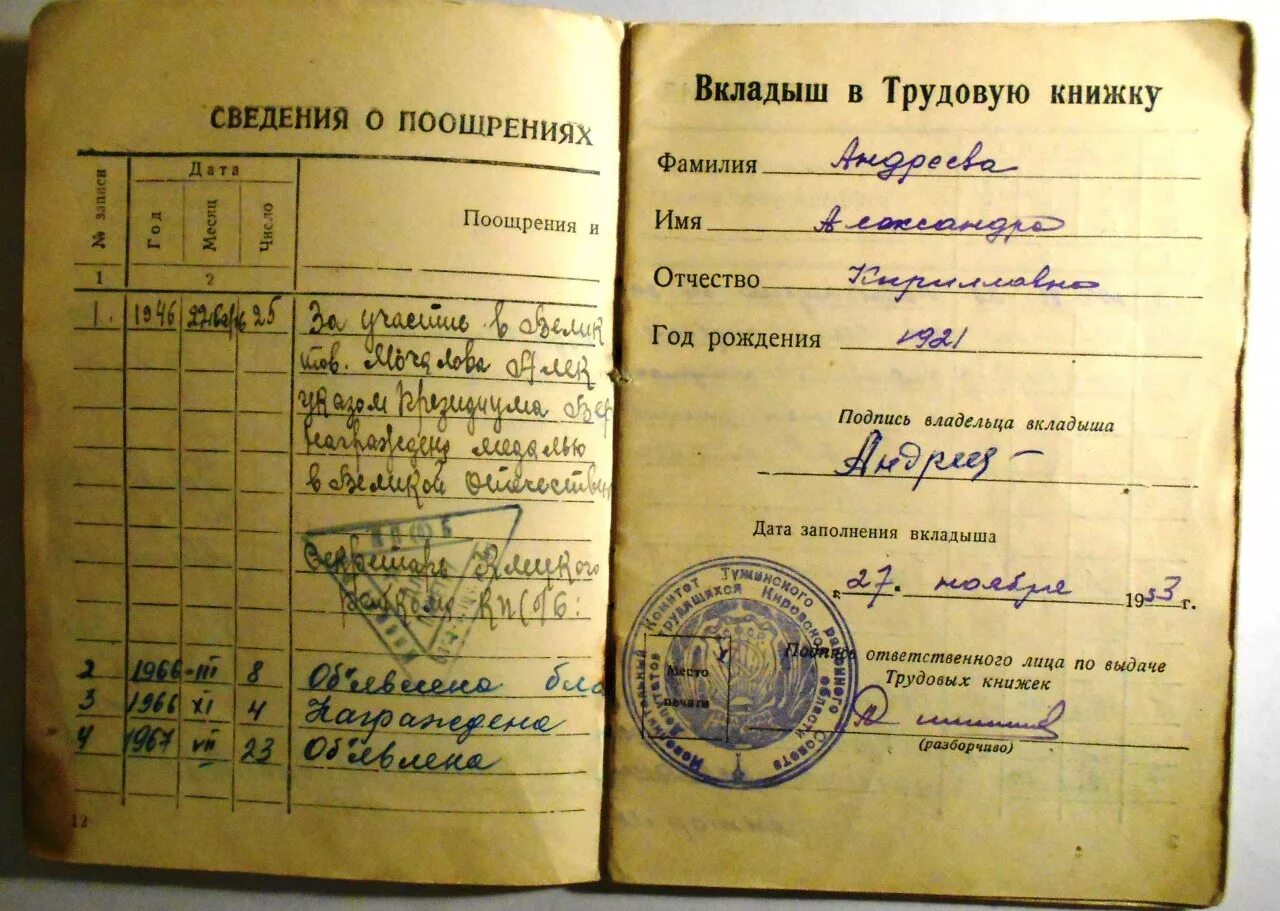 СВЕДЕНИЯ О ПООЩРЕНИЯХ
№ записи
Дата
Год
Месяц
Число
Поощрения и
1
2
1. 1946 25 За участие в Велик
тов. Мочалова Алек
указом Президиума Вер
награждена медалью
в Великой Отечествен
Секретарь
райкома
2 1966 III 8 Объявлена бла
3 1966 XI 4 Награждена
4 1967 VII 23 Объявлена
12
Вкладыш в Трудовую книжку
Фамилия Андреева
Имя Александра
Отчество Кирилловна
Год рождения 1921
Подпись владельца вкладыша
Дата заполнения вкладыша
„27“ ноября 1953 г.
Место
печати
Подпись ответственного лица по выдаче
Трудовых книжек
(разборчиво)
Исполнительный Комитет Тужинского районного Совета
депутатов трудящихся Кировской области